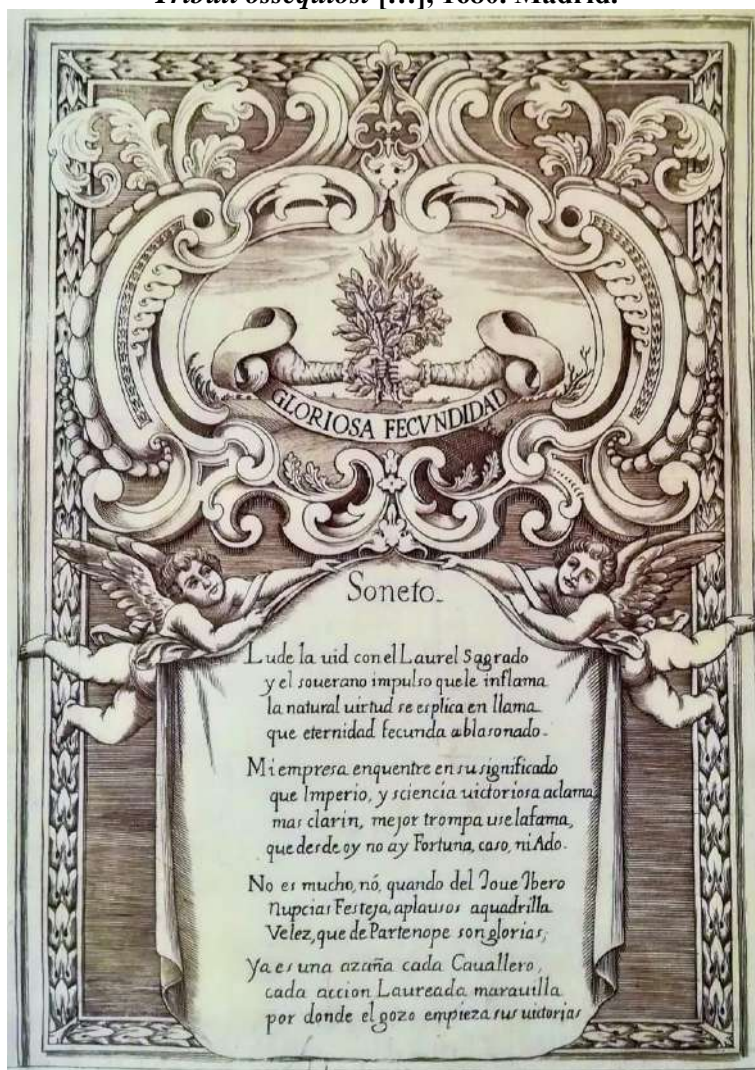 Tributi ossequiosi […], 1680. Madrid.
GLORIOSA FECVNDIDAD
Soneto.
Lude la uid con el Laurel Sagrado
y el souerano impulso que le inflama
la natural uirtud se esplica en llama
que eternidad fecunda a blasonado.
Mi empresa enquentre en su significado
que Imperio, y sciencia uictoriosa aclama,
mas clarin, mejor trompa use la fama,
que desde oy no ay Fortuna, caso, ni Ado.
No es mucho, nó, quando del Joue Ibero
Nupcias Festeja, aplausos aquadrilla
Velez, que de Partenope son glorias;
Ya es una azaña cada Cauallero,
cada accion Laureada marauilla
por donde el gozo empieza sus uictorias